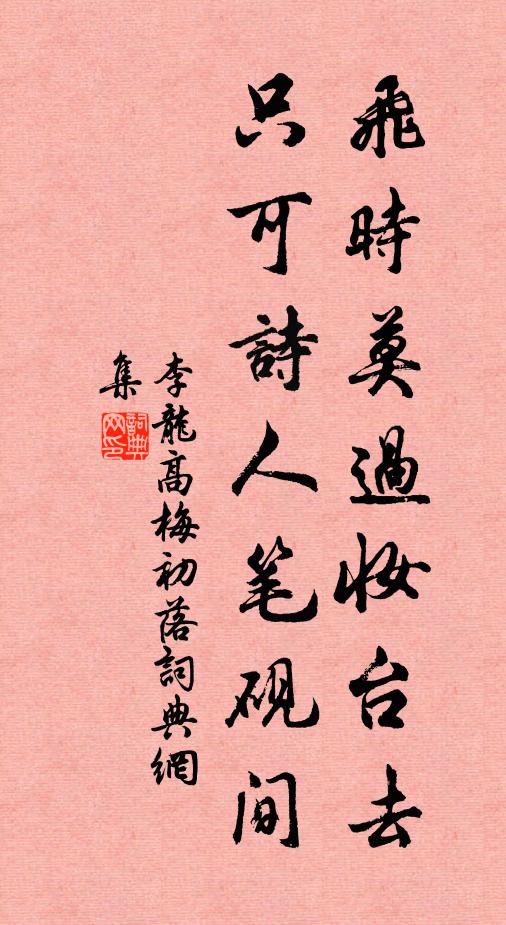 飛時莫過妝台去
只可詩人笔硯间
李龍高梅初落詞典網
集
詞典网印